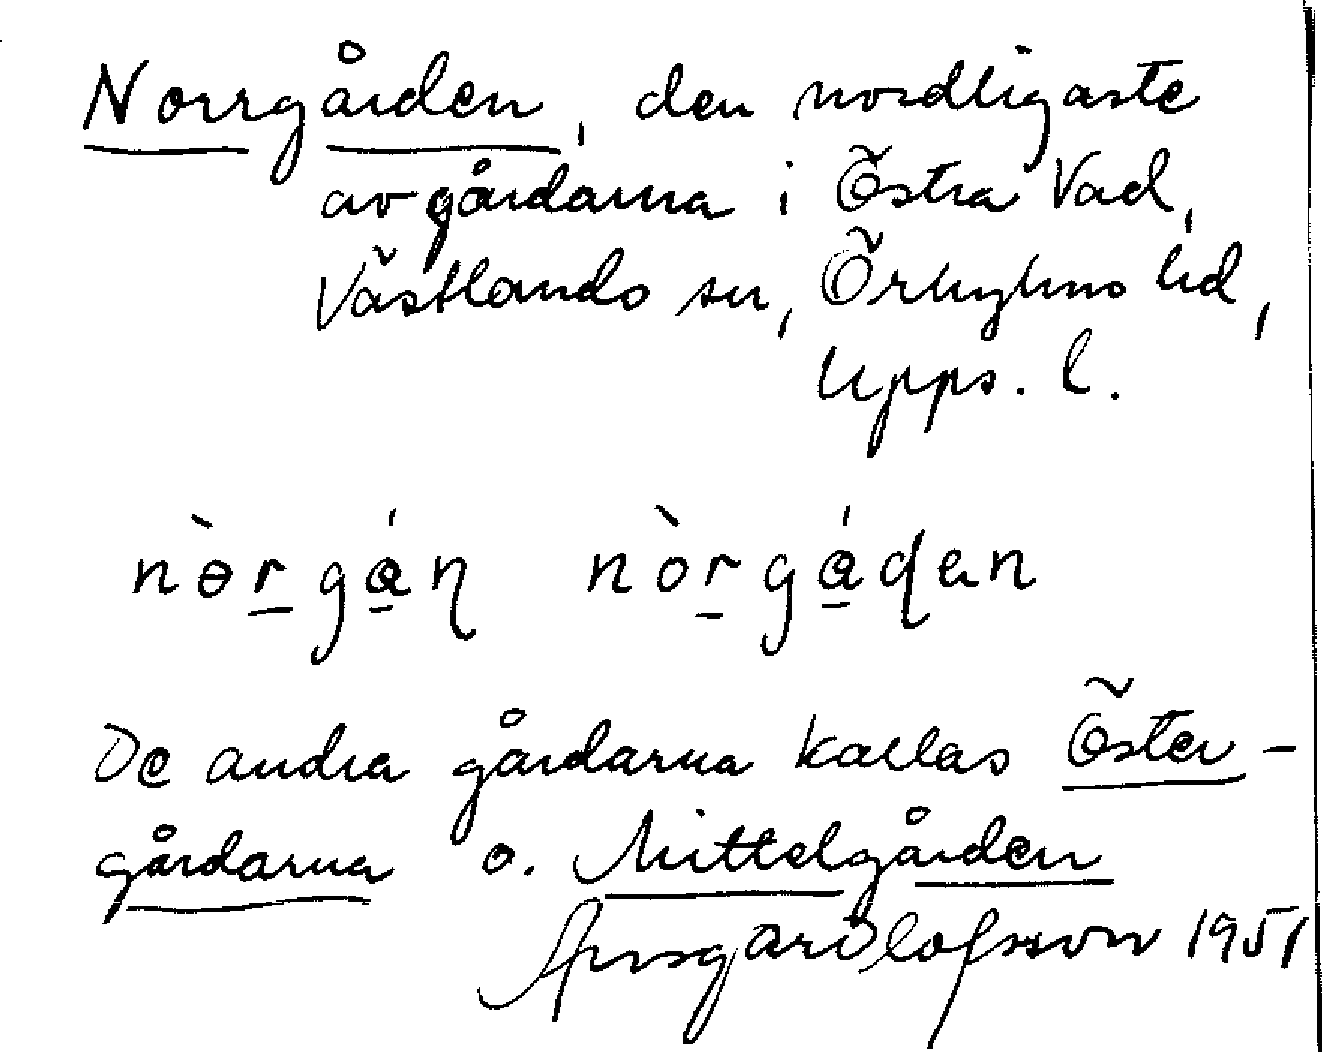 Norrgården, den nordligaste
av gårdarna i Östra Vad,
Västlands sn, Örbyhus hd,
Upps. l.
nòrgán nòrgáden
De andra gårdarna kallas Öster-
gårdarna o. Mittelgården
Ansgar Olofsson 1951